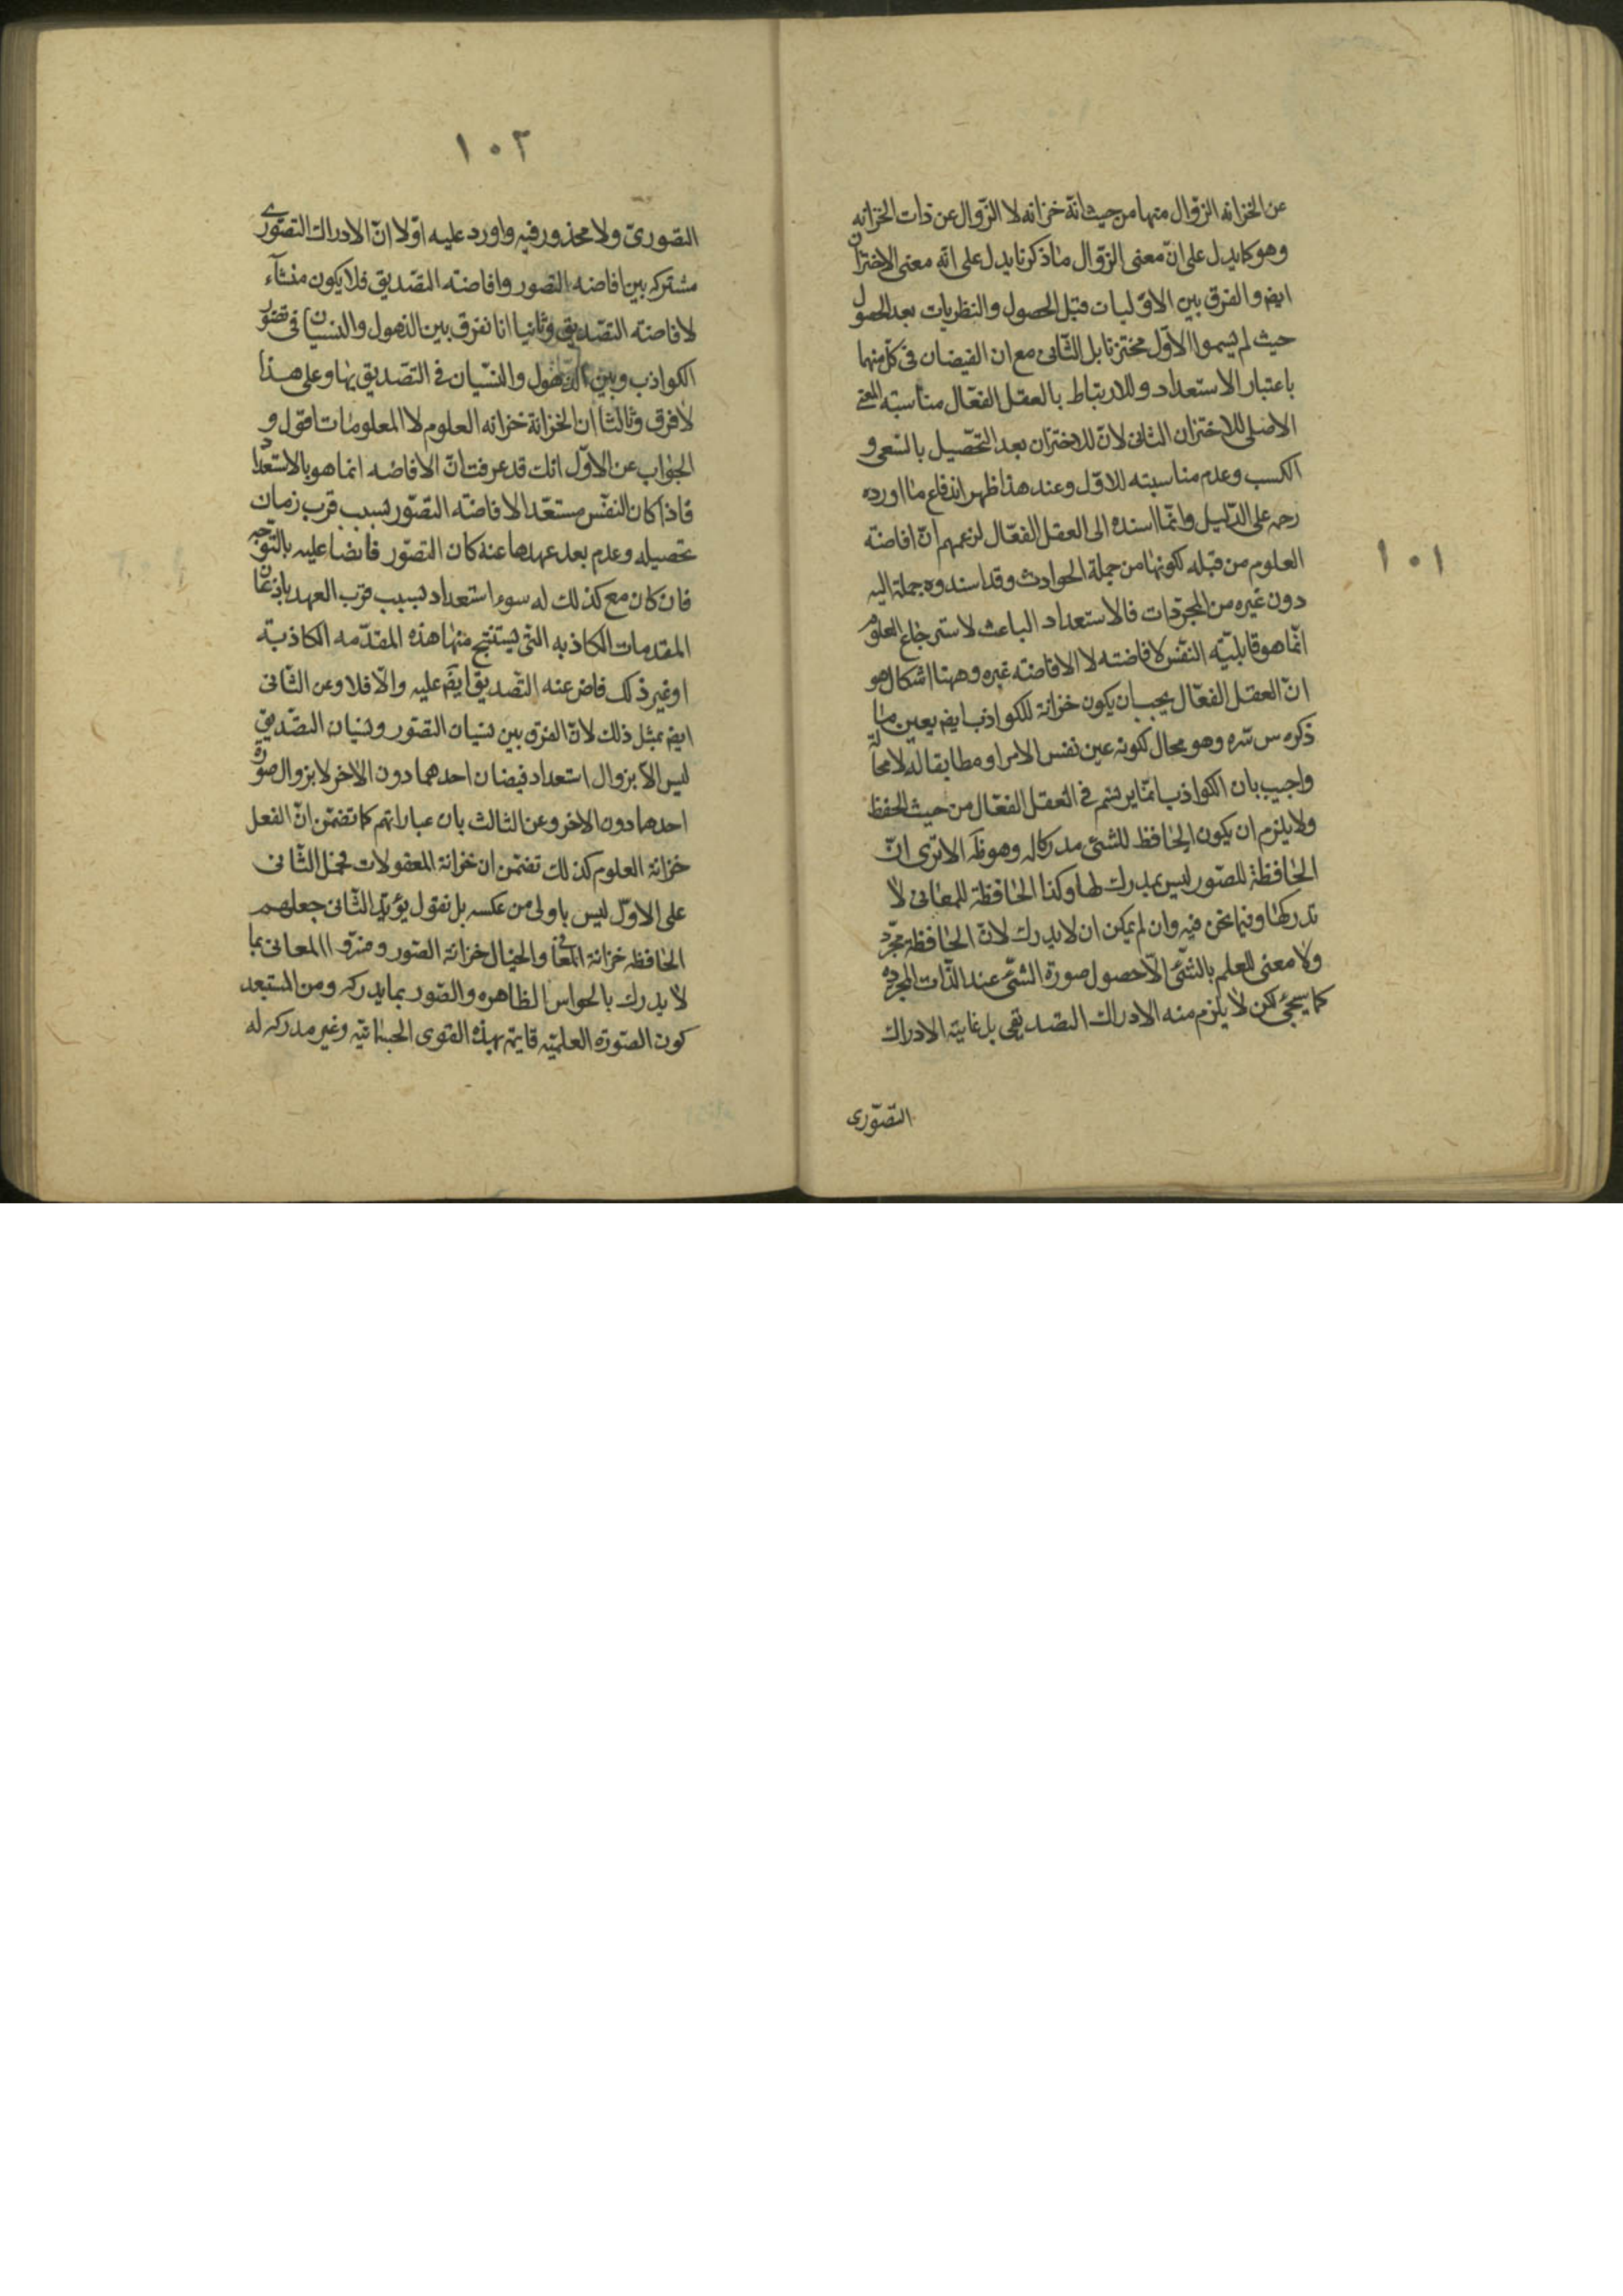 ١٠١
عن الخزانه الزوال منها من حيث انّه خزانه لا الزّوال عن ذات الخزانه
وهو كما يدل على انّ معنى الزّوال ما ذكرنا يدل على انّه معنى الاختزان
ايضم والفرق بين الاوّليات قبل الحصول والنظريات بعد الحصول
حيث لم يسموا الاوّل مختزنا بل الثّانى مع ان الفيضان فى كلّ منهما
باعتبار الاستعداد وللارتباط بالعقل الفعّال مناسبته المعنى
الاصلى للاختزان الثانى لانّ للاختزان بعد التحّصيل بالسّعى و
الكسب وعدم مناسبته للاوّل وعند هذا ظهر اندفاع ما اورده
رحمه على الدّليل وانّما اسنده الى العقل الفعّال لزعمهم انّ افاضة
العلوم من قبله لكونها من جملة الحوادث وقد اسندوه جملة اليه
دون غيره من المجرّدات فالاستعداد الباعث لاسترجاع العلوم
انّما هو قابليّته النّفس لافاضته لا الافاضته غيره وههنا اشكال هو
انّ العقل الفعّال يجب ان يكون خزانة للكواذب ايضم بعين ما
ذكره س سّره وهو محال لكونه عين نفس الامر او مطابقا له لا محالة
واجيب بان الكواذب انمّا يرتسم فى العقل الفعّال من حيث الحفظ
ولا يلزم ان يكون الحافظ للشئ مدركا له وهو ظَ الا ترى انّ
الحافظة للصّور ليس بمدرك لها وكذا الحافظة للمعانى لا
تدركها وفيما نحن فيه وان لم يمكن ان لا يدرك لانّ الحافظة مجّرد
ولا معنى للعلم بالشّئ الاّ حصول صورة الشئ عند الذّات المجرده
كما سيجئ لكن لا يلزم منه الادراك التصديقى بل غاية الادراك
التصّورى
١٠٢
التصّورىّ ولا محذور فيه واورد عليه اوّلا انّ الادراك التصوّرى
مشتركه بين افاضه التصور وافاضته التصّديق فلا يكون منشآء
لافاضته التصّديق وثانيا انا نفرق بين الذهول والنسيان فى تصّور
الكواذب وبين الذّهول والنسّيان فى التصّديق بها وعلى هذا
لا فرق وثالثا ان الخزانة خزانه العلوم لا المعلومات اقول و
الجواب عن الاوّل انك قد عرفت انّ الافاضه انما هو بالاستعداد
فاذا كان النفّس مستعّدا لافاضته التصّور بسبب قرب زمان
تحصيله وعدم بعد عهدها عنه كان التصّور فايضا عليه بالتّوجه
فان كان مع كذلك له سوء استعداد بسبب قرب العهد باذعان
المقدمات الكاذبه التى يستنتج منها هذه المقدّمه الكاذبة
او غير ذلك فاض عنه التّصديق ايضَم عليه والاّ فلا وعن الثّانى
ايضم بمثل ذلك لانّ الفرق بين نسيان التصّور ونسيان التصّديق
ليس الاّ بزوال استعداد فيضان احدهما دون الاخر لا بزوال صورة
احدهما دون الاخر وعن الثالث بان عباراتهم كما تضمّن انّ الفعل
خزانة العلوم كذلك تضمّن ان خزانة المعقولات فحمل الثّانى
على الاوّل ليس باولى من عكسه بل نقول يؤيّد الثّانى جعلهم
الحافظه خزانة المعانى والخيال خزانة الصّور وفسّروا المعانى بما
لا يدرك بالحواس الظاهره والصّور بما يدركه ومن المستبعد
كون الصّورة العلميّه قايمة بهذه القوى الجسمانيّه وغير مدركه له